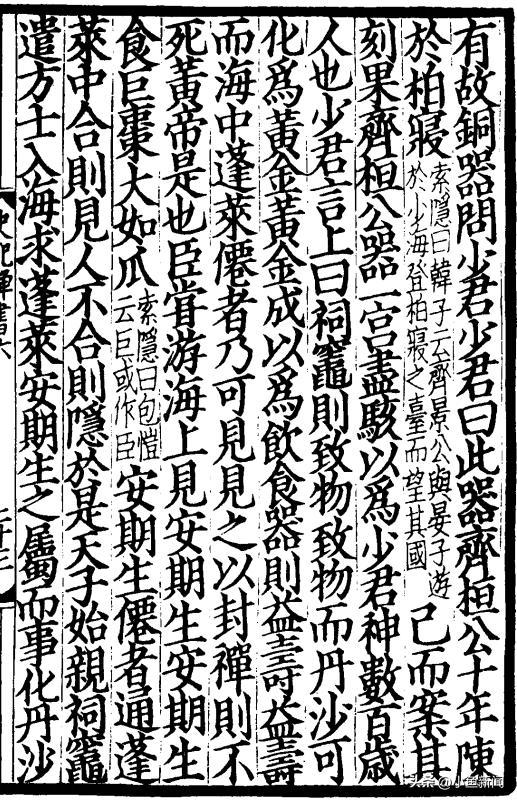 有故銅器問少君少君曰此器齊桓公十年陳
於柏寢索隱曰韓子云齊景公與晏子遊於少海登柏寢之臺而望其國已而案其
刻果齊桓公器一宮盡駭以爲少君神數百歳
人也少君言上曰祠竈則致物致物而丹沙可
化爲黃金黃金成以爲飲食器則益壽益壽
而海中蓬萊僊者乃可見見之以封禪則不
死黃帝是也臣甞游海上見安期生安期生
食巨棗大如瓜索隱曰包愷云巨或作臣安期生僊者通蓬
萊中合則見人不合則隱於是天子始親祠竈
遣方士入海求蓬萊安期生之屬而事化丹沙
头条 @小鱼新闻